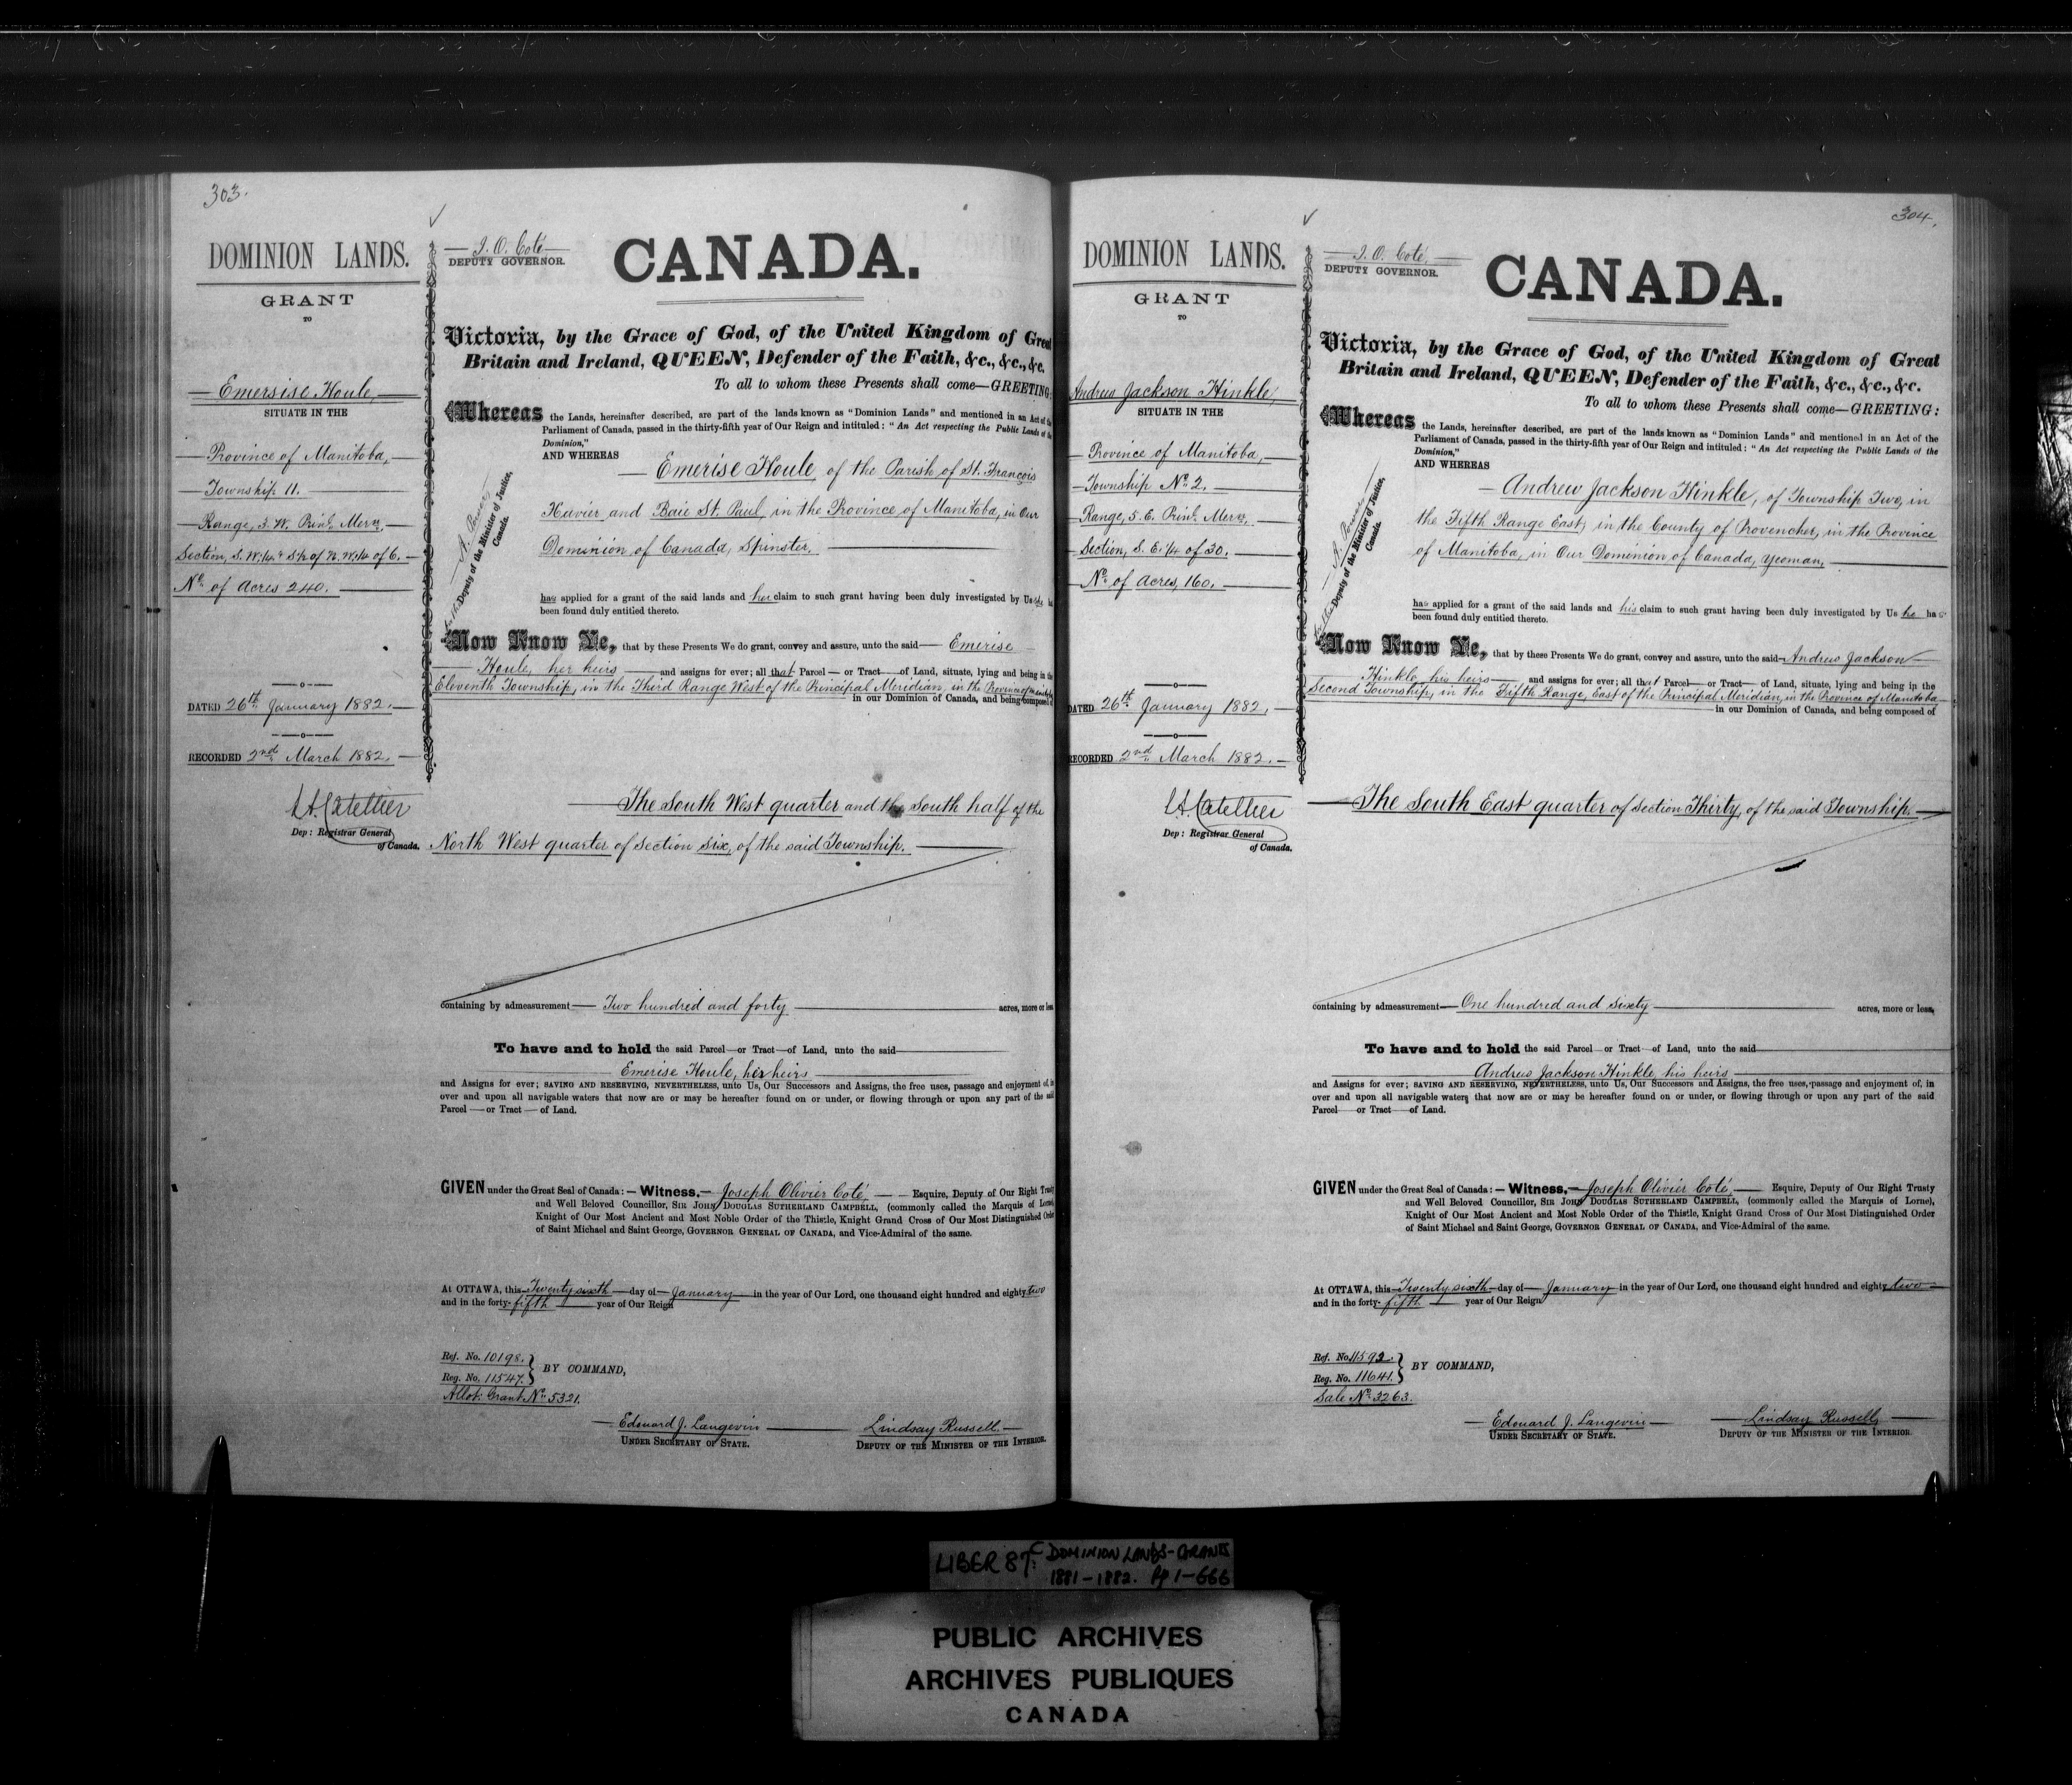 303.
DOMINION LANDS.
GRANT
TO
Emersise Houle,
SITUATE IN THE
Province of Manitoba,
Township 11.
Range, 3. W. Prinl. Mern.
Section, S. W. 1/4 & S 1/2 of N. W. 1/4 of 6.
No. of Acres 240.
DATED 26th January 1882.
RECORDED 2nd March 1882.
Dep: Registrar General
of Canada.
J. O. Coté
DEPUTY GOVERNOR.
CANADA.
Victoria, by the Grace of God, of the United Kingdom of Great
Britain and Ireland, QUEEN, Defender of the Faith, &c., &c., &c.
To all to whom these Presents shall come—GREETING:
Whereas the Lands, hereinafter described, are part of the lands known as "Dominion Lands" and mentioned in an Act of the
Parliament of Canada, passed in the thirty-fifth year of Our Reign and intituled: "An Act respecting the Public Lands of the
Dominion,"
AND WHEREAS
Emerise Houle, of the Parish of St. François
Xavier and Baie St. Paul, in the Province of Manitoba, in Our
Dominion of Canada, Spinster,
Deputy of the Minister of Justice,
Canada.
has applied for a grant of the said lands and her claim to such grant having been duly investigated by Us she ha
been found duly entitled thereto.
Now Know Ye, that by these Presents We do grant, convey and assure, unto the said Emerise
Houle, her heirs and assigns for ever; all that Parcel or Tract of Land, situate, lying and being in the
Eleventh Township, in the Third Range West of the Principal Meridian, in the Province of Manitoba
in our Dominion of Canada, and being composed of
The South West quarter and the South half of the
North West quarter of Section Six, of the said Township.
containing by admeasurement Two hundred and forty acres, more or less
To have and to hold the said Parcel or Tract of Land, unto the said
Emerise Houle, her heirs
and Assigns for ever; SAVING AND RESERVING, NEVERTHELESS, unto Us, Our Successors and Assigns, the free uses, passage and enjoyment of, in
over and upon all navigable waters that now are or may be hereafter found on or under, or flowing through or upon any part of the said
Parcel or Tract of Land.
GIVEN under the Great Seal of Canada: Witness, Joseph Olivier Coté, Esquire, Deputy of Our Right Trusty
and Well Beloved Councillor, SIR JOHN DOUGLAS SUTHERLAND CAMPBELL, (commonly called the Marquis of Lorne),
Knight of Our Most Ancient and Most Noble Order of the Thistle, Knight Grand Cross of Our Most Distinguished Order
of Saint Michael and Saint George, GOVERNOR GENERAL OF CANADA, and Vice-Admiral of the same.
At OTTAWA, this Twenty sixth day of January in the year of Our Lord, one thousand eight hundred and eighty two
and in the forty-fifth year of Our Reign
Ref. No. 10198.
Reg. No. 11547.
BY COMMAND,
Allot: Grant No. 5321.
Edouard J. Langevin
UNDER SECRETARY OF STATE.
Lindsay Russell.
DEPUTY OF THE MINISTER OF THE INTERIOR.
304.
DOMINION LANDS.
GRANT
TO
Andrew Jackson Hinkle,
SITUATE IN THE
Province of Manitoba,
Township No. 2.
Range, 5. E. Prinl. Mern.
Section, S. E. 1/4 of 30.
No. of Acres, 160.
DATED 26th January 1882,
RECORDED 2nd March 1882.
Dep: Registrar General
of Canada.
J. O. Coté,
DEPUTY GOVERNOR.
CANADA.
Victoria, by the Grace of God, of the United Kingdom of Great
Britain and Ireland, QUEEN, Defender of the Faith, &c., &c., &c.
To all to whom these Presents shall come—GREETING:
Whereas the Lands, hereinafter described, are part of the lands known as "Dominion Lands" and mentioned in an Act of the
Parliament of Canada, passed in the thirty-fifth year of Our Reign and intituled: "An Act respecting the Public Lands of the
Dominion,"
AND WHEREAS
Andrew Jackson Hinkle, of Township Two, in
the Fifth Range East, in the County of Provencher, in the Province
of Manitoba, in Our Dominion of Canada, yeoman,
Deputy of the Minister of Justice,
Canada.
has applied for a grant of the said lands and his claim to such grant having been duly investigated by Us he has
been found duly entitled thereto.
Now Know Ye, that by these Presents We do grant, convey and assure, unto the said Andrew Jackson
Hinkle, his heirs and assigns for ever; all that Parcel or Tract of Land, situate, lying and being in the
Second Township, in the Fifth Range, East of the Principal Meridian, in the Province of Manitoba
in our Dominion of Canada, and being composed of
The South East quarter of Section Thirty, of the said Township.
containing by admeasurement One hundred and Sixty acres, more or less,
To have and to hold the said Parcel or Tract of Land, unto the said
Andrew Jackson Hinkle, his heirs
and Assigns for ever; SAVING AND RESERVING, NEVERTHELESS, unto Us, Our Successors and Assigns, the free uses, passage and enjoyment of, in
over and upon all navigable waters that now are or may be hereafter found on or under, or flowing through or upon any part of the said
Parcel or Tract of Land.
GIVEN under the Great Seal of Canada: Witness, Joseph Olivier Coté, Esquire, Deputy of Our Right Trusty
and Well Beloved Councillor, SIR JOHN DOUGLAS SUTHERLAND CAMPBELL, (commonly called the Marquis of Lorne),
Knight of Our Most Ancient and Most Noble Order of the Thistle, Knight Grand Cross of Our Most Distinguished Order
of Saint Michael and Saint George, GOVERNOR GENERAL OF CANADA, and Vice-Admiral of the same.
At OTTAWA, this Twenty sixth day of January in the year of Our Lord, one thousand eight hundred and eighty two
and in the forty-fifth year of Our Reign
Ref. No. 11592.
Reg. No. 11641.
BY COMMAND,
Sale No. 3263.
Edouard J. Langevin
UNDER SECRETARY OF STATE.
Lindsay Russell,
DEPUTY OF THE MINISTER OF THE INTERIOR.
LIBER 87: DOMINION LANDS-GRANTS
1881-1882. Pp 1-666
PUBLIC ARCHIVES
ARCHIVES PUBLIQUES
CANADA